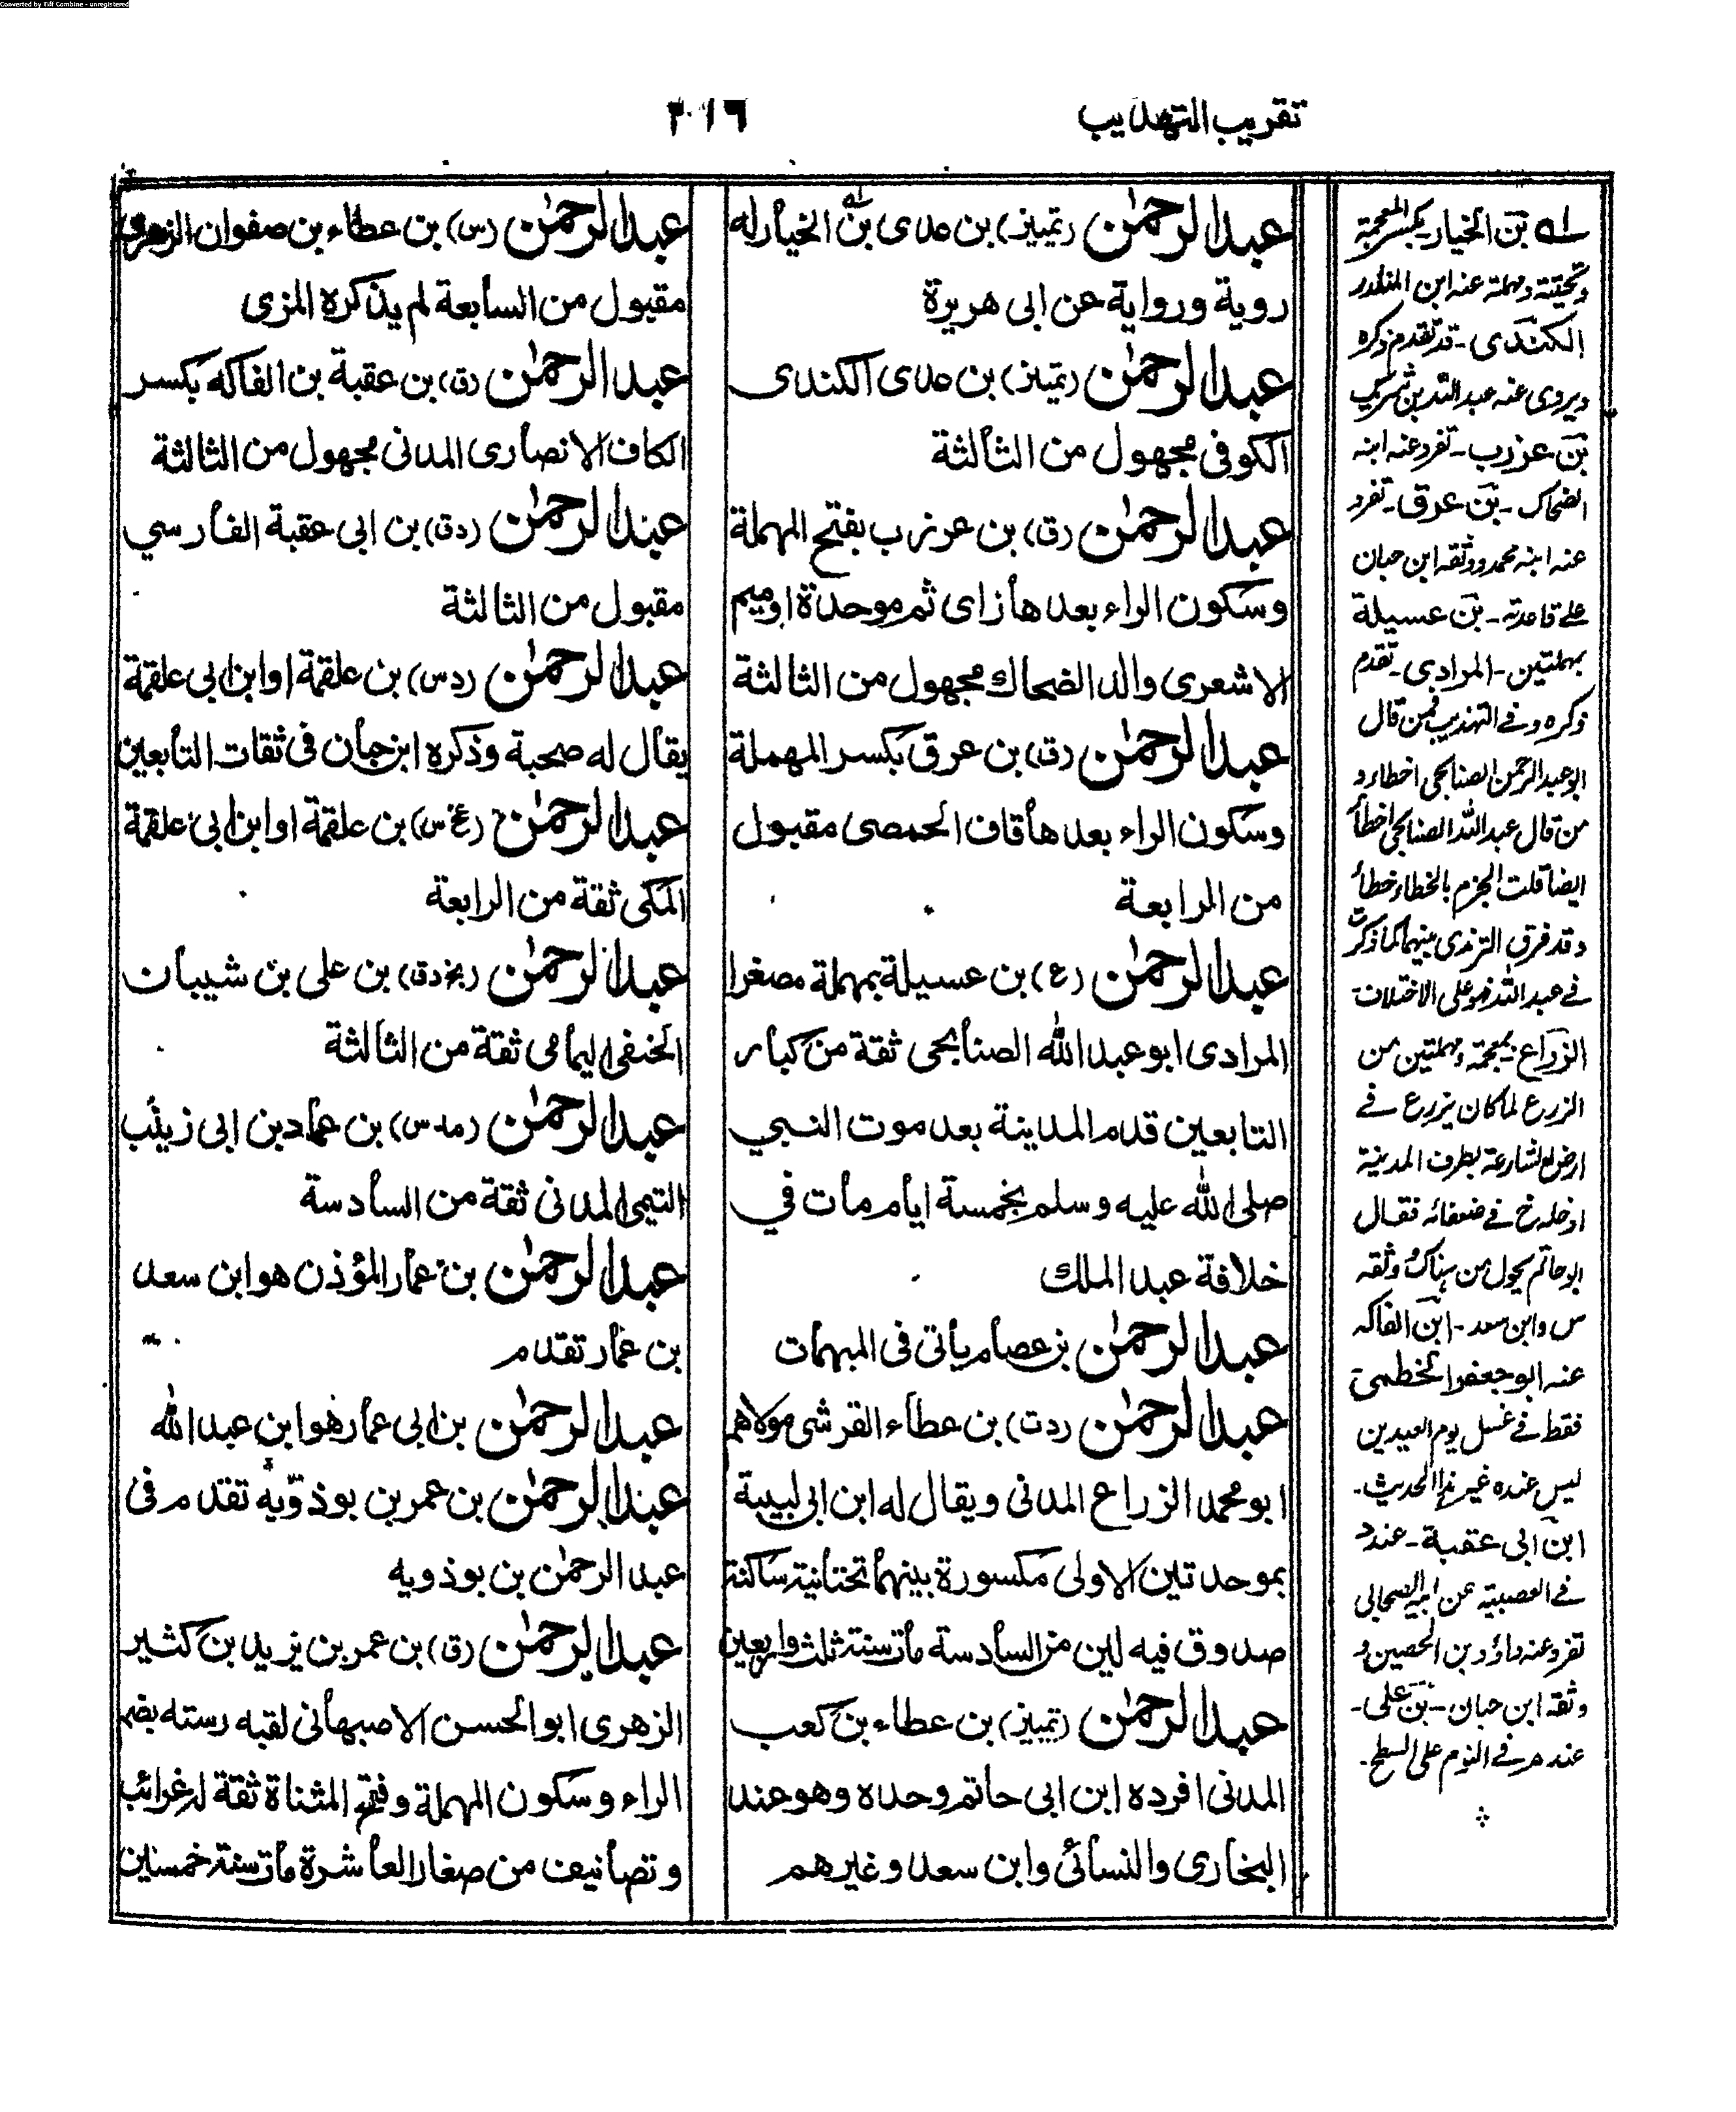 Converted by Tiff Combine - unregistered
تقريب التهذيب
٢١٦
عبد الرحمٰن (تمييز) بن عدى بن الخيار له
روية ورواية عن ابى هريرة
عبد الرحمٰن (تمييز) بن عدى الكندى
الكوفى مجهول من الثالثة
عبد الرحمٰن (ق) بن عرزب بفتح المهملة
وسكون الراء بعدها زاى ثم موحدة او ميم
الاشعرى والد الضحاك مجهول من الثالثة
عبد الرحمٰن (ق) بن عرق بكسر المهملة
وسكون الراء بعدها قاف الحمصى مقبول
من الرابعة
عبد الرحمٰن (ع) بن عسيلة بمهملة مصغرا
المرادى ابو عبد الله الصنابحى ثقة من كبار
التابعين قدم المدينة بعد موت النبي
صلى الله عليه وسلم بخمسة ايام مات في
خلافة عبد الملك
عبد الرحمٰن بن عصام يأتى فى المبهمات
عبد الرحمٰن (دت) بن عطاء القرشى مولاهم
ابو محمد الزراع المدنى ويقال له ابن ابى لبيبة
بموحدتين الاولى مكسورة بينهما تحتانية ساكنة
صدوق فيه لين من السادسة مات سنة ثلث واربعين
عبد الرحمٰن (تمييز) بن عطاء بن كعب
المدنى افرده ابن ابى حاتم وحده وهو عند
البخارى والنسائى وابن سعد وغيرهم
عبد الرحمٰن (س) بن عطاء بن صفوان الزهرى
مقبول من السابعة لم يذكره المزى
عبد الرحمٰن (ق) بن عقبة بن الفاكه بكسر
الكاف الانصارى المدنى مجهول من الثالثة
عبد الرحمٰن (دق) بن ابى عقبة الفارسي
مقبول من الثالثة
عبد الرحمٰن (دس) بن علقمة او ابن ابى علقمة
يقال له صحبة وذكره ابن حبان فى ثقات التابعين
عبد الرحمٰن (عخ س) بن علقمة او ابن ابى علقمة
المكى ثقة من الرابعة
عبد الرحمٰن (بخ دق) بن على بن شيبان
الحنفى اليمامى ثقة من الثالثة
عبد الرحمٰن (مد س) بن عماد بن ابى زينب
التيمى المدنى ثقة من السادسة
عبد الرحمٰن بن عمار المؤذن هو ابن سعد
بن عمار تقدم
عبد الرحمٰن بن ابى عمار هو ابن عبد الله
عبد الرحمٰن بن عمر بن بوذويه تقدم فى
عبد الرحمٰن بن بوذويه
عبد الرحمٰن (ق) بن عمر بن يزيد بن كثير
الزهرى ابو الحسن الاصبهانى لقبه رسته بضم
الراء وسكون المهملة وفتح المثناة ثقة له غرائب
وتصانيف من صغار العاشرة مات سنة خمسين
له بن الخيار بكسر المعجمة
وتحتية ومهملة عنه ابن المنكدر
الكندى - قد تقدم ذكره
ويروى عنه عبد الله بن شريك
بن عزرب - تفرد عنه ابنه
الضحاك - بن عرق - تفرد
عنه ابنه محمد ووثقه ابن حبان
على قاعدته - بن عسيلة
بمهملتين - المرادى - تقدم
ذكره وفى التهذيب فمن قال
ابو عبد الرحمن الصنابحى اخطاء و
من قال عبد الله الصنابحى اخطأ
ايضا قلت الجزم بالخطاء خطأ
وقد فرق الترمذى بينهما كما ذكرت
فى عبد الله فهو على الاختلاف
الزراع بمعجمة ومهملتين من
الزرع لما كان يزرع فى
ارض الشارعة بطرف المدينة
ادخله خ فى ضعفائه فقال
ابو حاتم يحول من هناك وثقه
س وابن سعد - ابن الفاكه
عنه ابو جعفر الخطمى
فقط فى غسل يوم العيدين
ليس عنده غير هذا الحديث -
ابن ابى عقبة - عند د
فى العصبية عن ابيه الصحابى
تفرد عنه داؤد بن الحصين و
وثقه ابن حبان - بن على -
عندهم فى النوم على السطح -